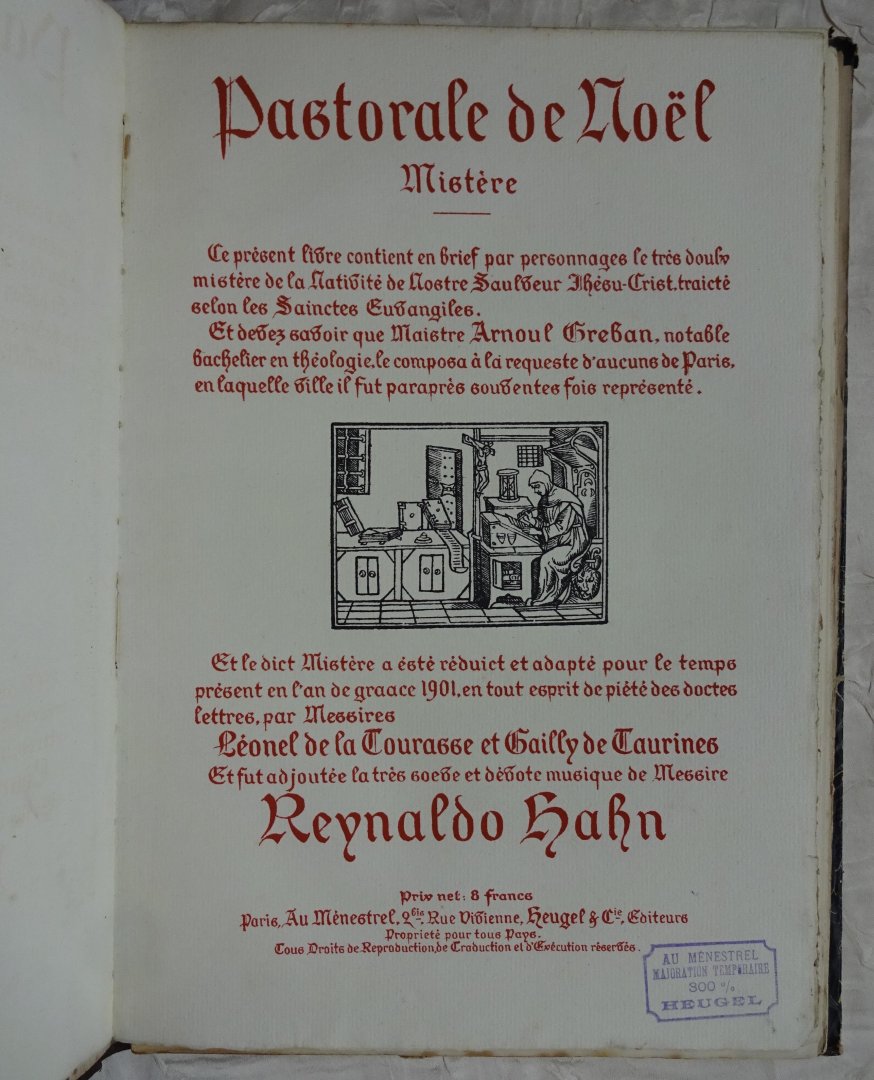 Pastorale de Noël
Mistère
Ce présent livre contient en brief par personnages le très doulx
mistère de la Nativité de Nostre Saulveur Jhésu-Crist, traicté
selon les Sainctes Euvangiles.
Et devez savoir que Maistre Arnoul Greban, notable
bachelier en théologie, le composa à la requeste d'aucuns de Paris,
en laquelle ville il fut paraprès souventes fois représenté.
Et le dict Mistère a ésté réduict et adapté pour le temps
présent en l'an de graace 1901, en tout esprit de piété des doctes
lettres, par Messires
Léonel de la Tourasse et Gailly de Taurines
Et fut adjoutée la très soeve et dévote musique de Messire
Reynaldo Hahn
Prix net: 8 francs
Paris, Au Ménestrel, 2bis, Rue Vivienne, Heugel & Cie, Editeurs
Propriété pour tous Pays.
Tous Droits de Reproduction, de Traduction et d'Exécution réservés.
AU MÉNESTREL
MAJORATION TEMPORAIRE
300 %
HEUGEL